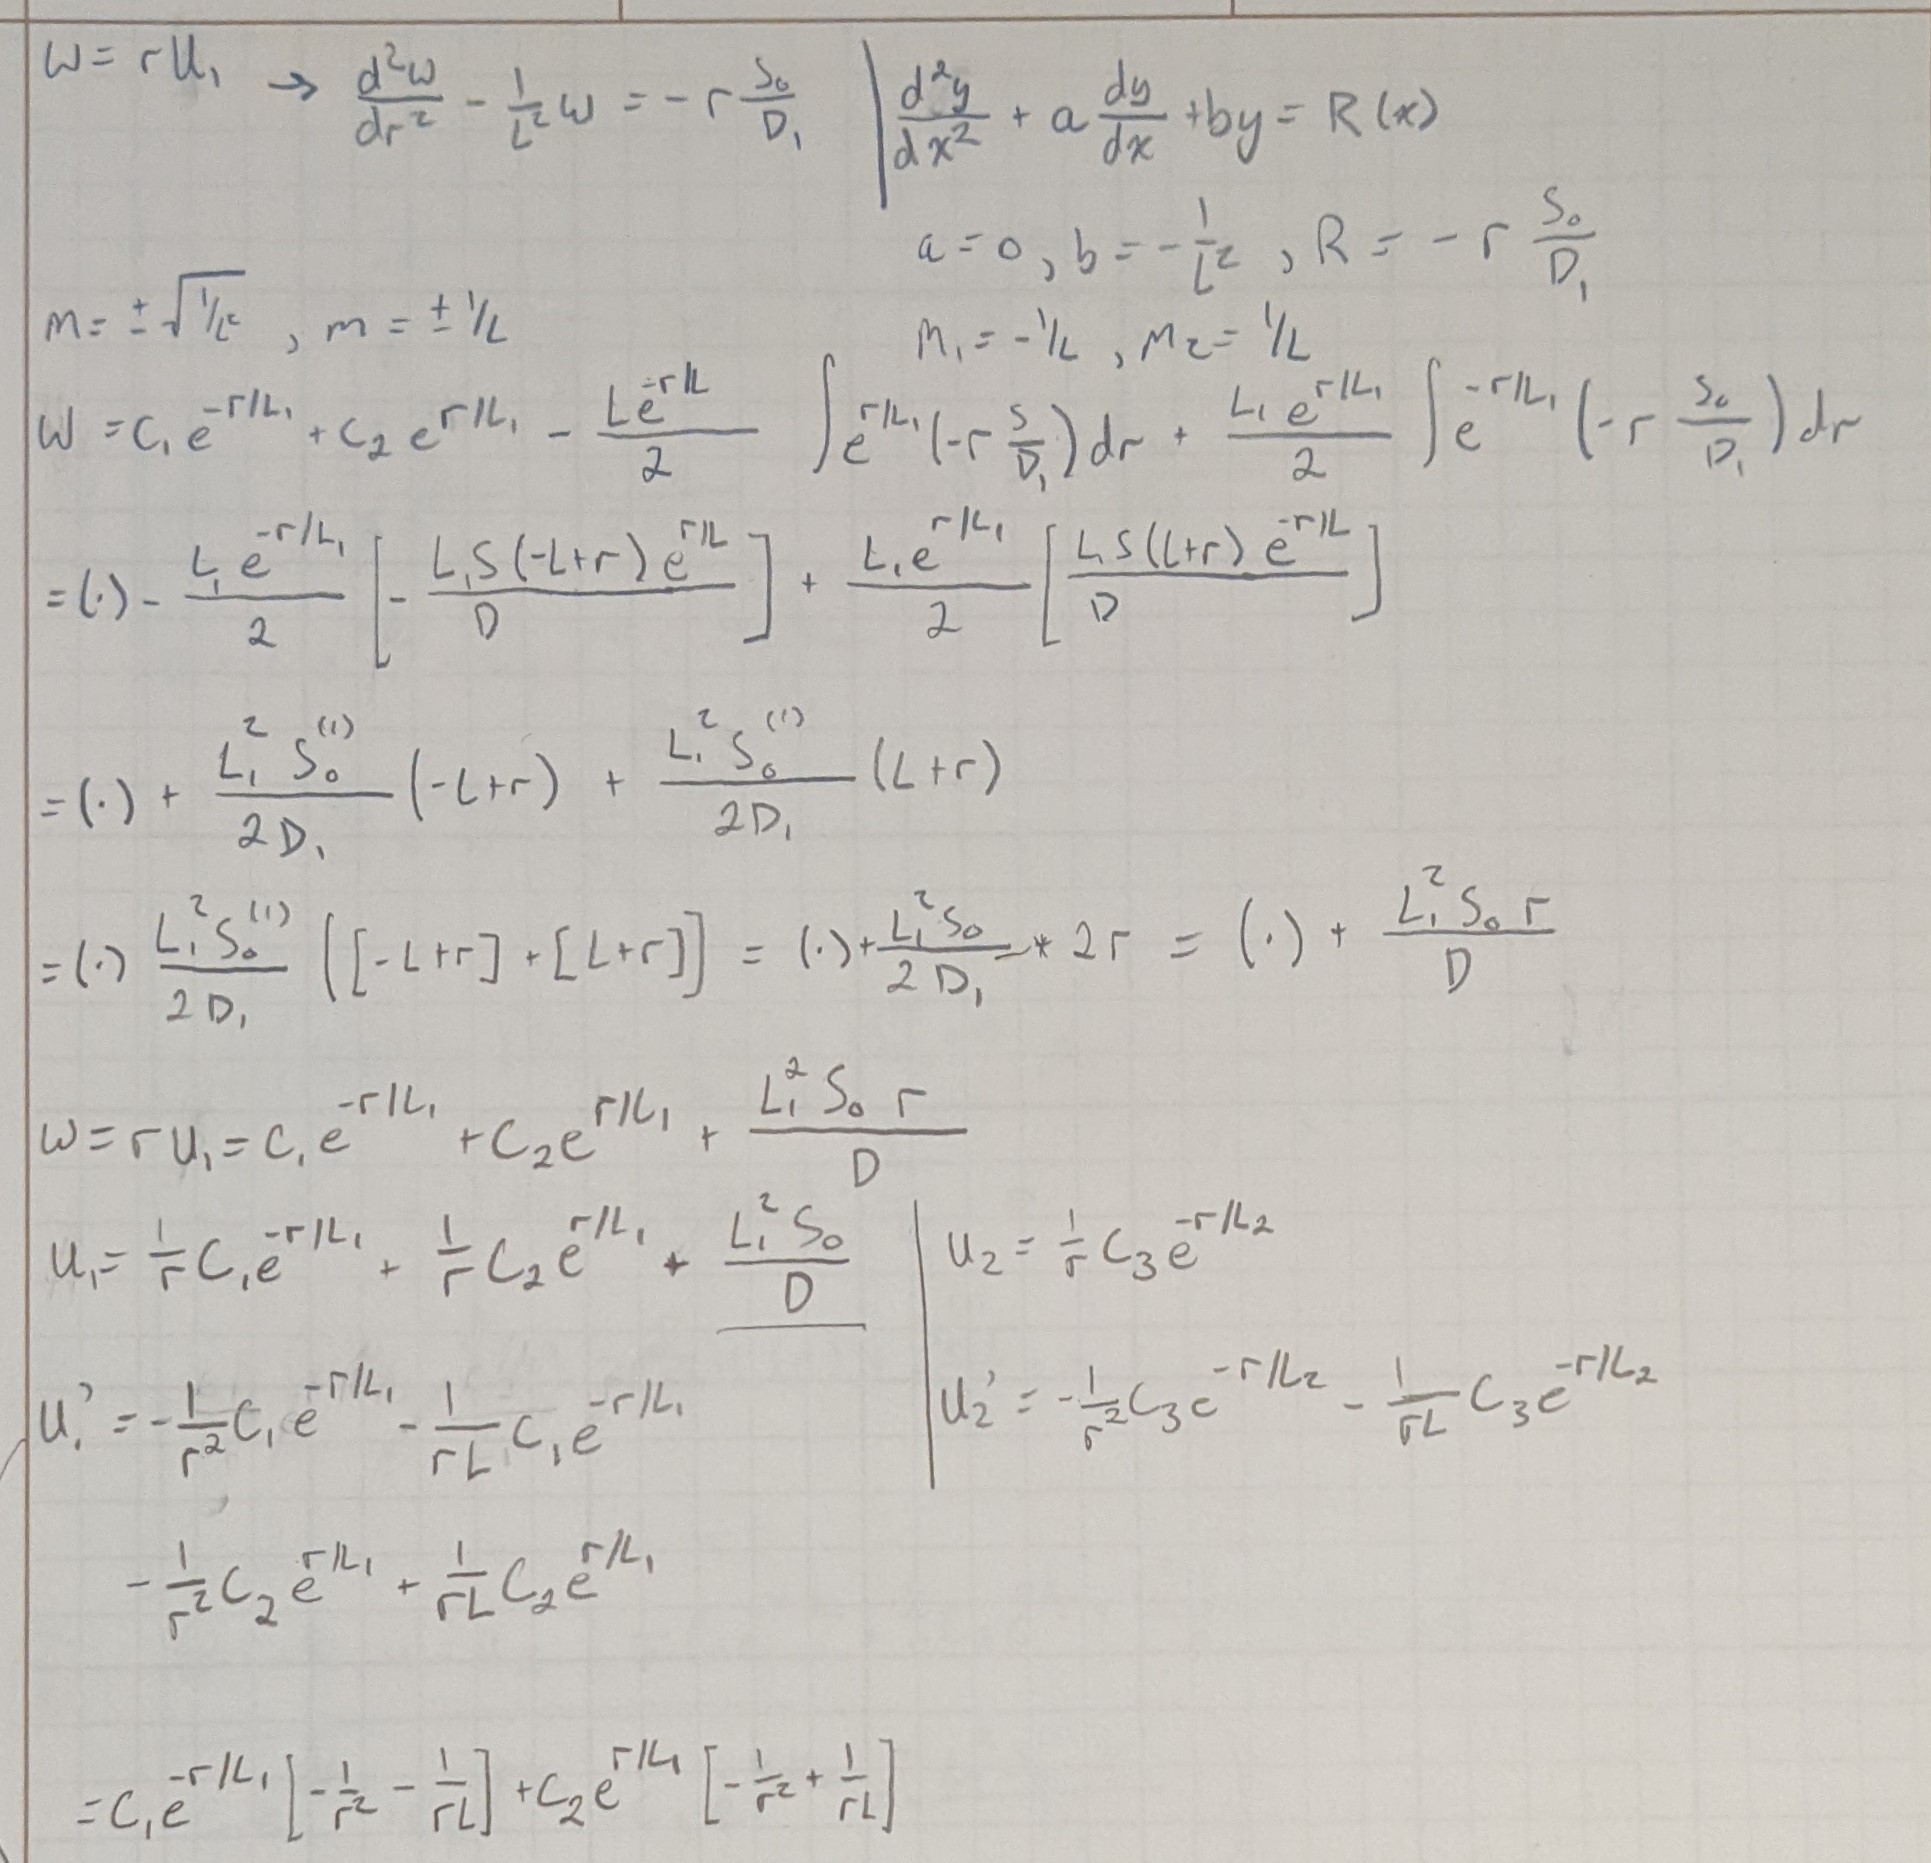 w = r u₁ → d²w/dr² - 1/L² w = - r S₀/D₁ | d²y/dx² + a dy/dx + by = R(x)
a = 0, b = - 1/L², R = - r S₀/D₁
m = ± √(1/L²), m = ± 1/L
m₁ = - 1/L, m₂ = 1/L
w = c₁ e^(-r/L₁) + c₂ e^(r/L₁) - (L e^(-r/L))/2 ∫ e^(r/L₁) (-r S/D₁) dr + (L₁ e^(r/L₁))/2 ∫ e^(-r/L₁) (-r S₀/D₁) dr
= (·) - (L₁ e^(-r/L₁))/2 [ - (L₁ S (-L+r) e^(r/L))/D ] + (L₁ e^(r/L₁))/2 [ (L₁ S (L+r) e^(-r/L))/D ]
= (·) + (L₁² S₀⁽¹⁾)/(2D₁) (-L+r) + (L₁² S₀⁽¹⁾)/(2D₁) (L+r)
= (·) (L₁² S₀⁽¹⁾)/(2D₁) ([-L+r] + [L+r]) = (·) + (L₁² S₀)/(2D₁) * 2r = (·) + (L₁² S₀ r)/D
w = r u₁ = c₁ e^(-r/L₁) + c₂ e^(r/L₁) + (L₁² S₀ r)/D
u₁ = 1/r c₁ e^(-r/L₁) + 1/r c₂ e^(r/L₁) + (L₁² S₀)/D | u₂ = 1/r c₃ e^(-r/L₂)
u₁' = - 1/r² c₁ e^(-r/L₁) - 1/(rL) c₁ e^(-r/L₁) | u₂' = - 1/r² c₃ e^(-r/L₂) - 1/(rL) c₃ e^(-r/L₂)
- 1/r² c₂ e^(r/L₁) + 1/(rL) c₂ e^(r/L₁)
= c₁ e^(-r/L₁) [ - 1/r² - 1/(rL) ] + c₂ e^(r/L₁) [ - 1/r² + 1/(rL) ]